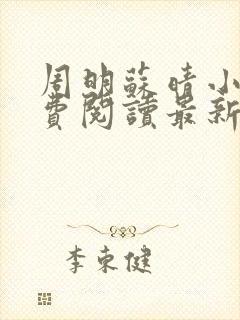 周明蘇晴小
費閱讀最新
李東健